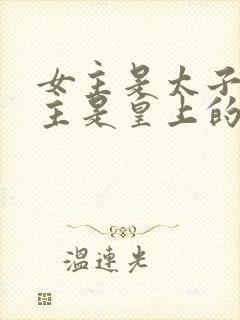 女主是太子
主是皇上的
温连光